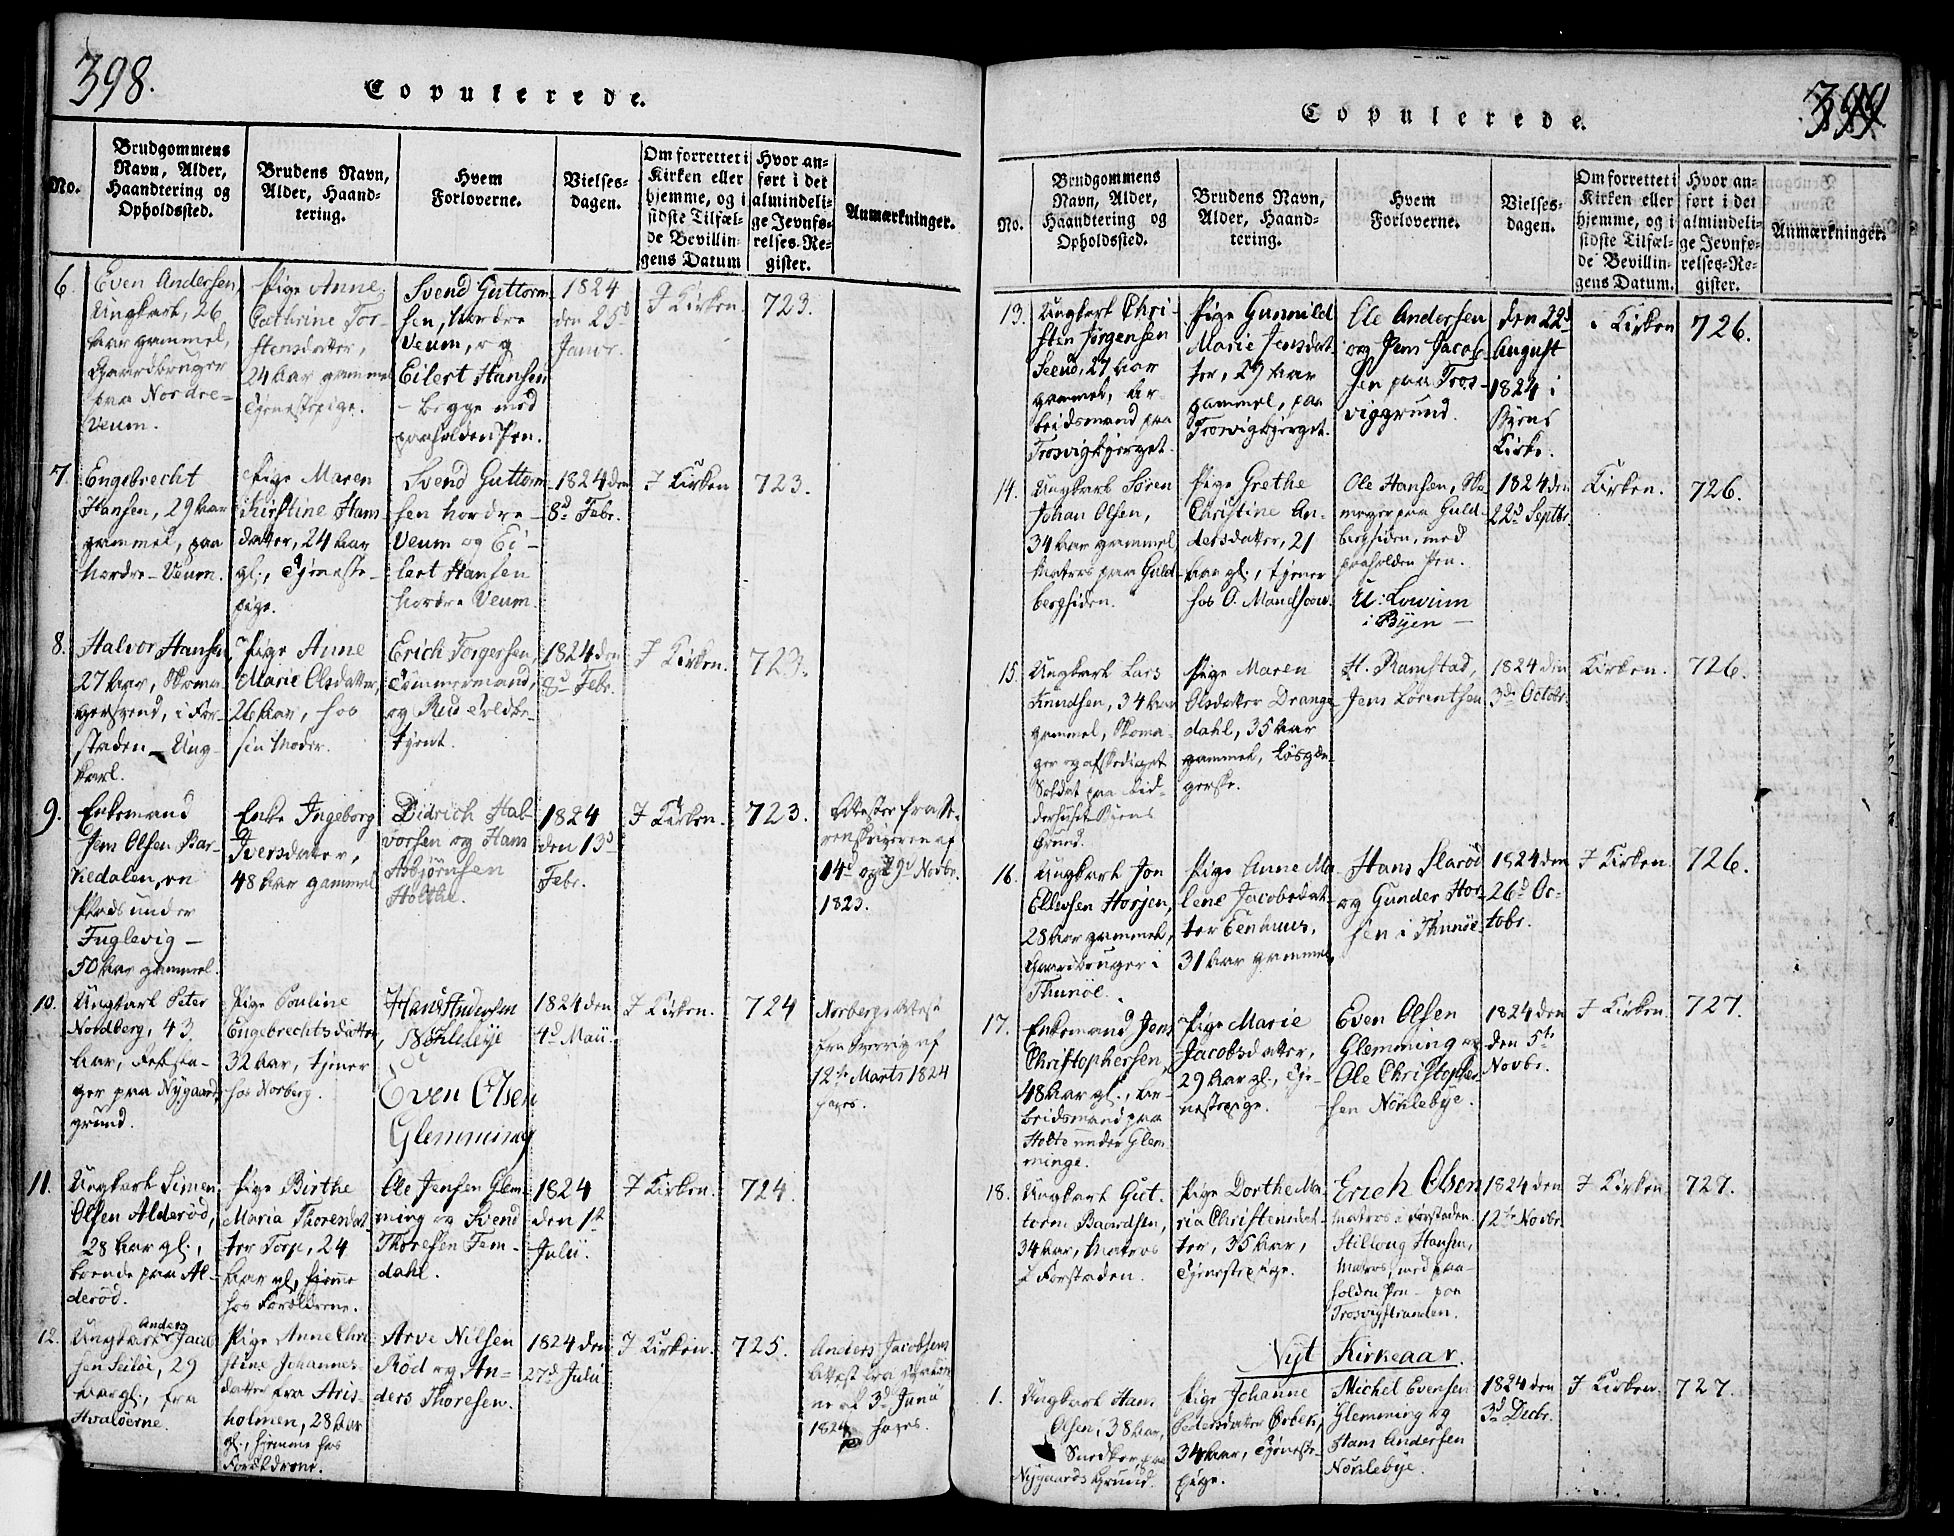 398.
Copulerede.
No.
Brudgommens
Navn, Alder,
Haandtering og
Opholdssted.
Brudens Navn,
Alder, Haand-
tering.
Hvem
Forloverne.
Vielses-
dagen.
Om forrettet i
Kirken eller
hjemme, og i
sidste Tilfæl-
de Bevillin-
gens Datum
Hvor an-
ført i det
almindeli-
ge Jevnfø-
relses-Re-
gister.
Anmærkninger.
6.
Even Andersen,
Ungkarl, 26
Aar gammel,
Gaardbruger
paa Nordre-
Veum.
Pige Anne
Cathrine Tor-
stensdatter,
24 Aar gammel
Tjenestepige.
Svend Guttorm-
sen, Nordre
Veum, og
Eilert Hansen
- begge med
paaholden Pen.
1824
den 25d
Janvr.
I Kirken.
723.
7.
Engebrecht
Hansen, 29 Aar
gammel, paa
Nordre-Veum.
Pige Maren
Kirstine Hans
datter, 24 Aar
gl., Tjeneste-
pige.
Svend Guttorm-
sen Nordre-
Veum og Ei-
lert Hansen
Nordre Veum.
1824 den
8d Febr.
I Kirken
723.
8.
Halvor Hansen,
27 Aar, Skoma-
gersvend, i For-
staden - Ung-
karl.
Pige Anne
Marie Olsdatter,
26 Aar, hos
sin Moder.
Erich Torgersen,
Tømmermand,
og Rud Feldbe-
tjent.
1824 den
8d Febr.
I Kirken.
723.
9.
Enkemand
Jens Olsen Bar-
kiedalen, en
Plads under
Fuglevig -
50 Aar gammel.
Enke Ingeborg
Iversdatter,
48 Aar gammel
Didrich Hal-
vorsen og Hans
Asbjørnsen
Holthe.
1824
den 13d
Febr.
I Kirken.
723.
Attester fra So-
renskriveren af
14d og 29d Novbr.
1823.
10.
Ungkarl Peter
Nordberg, 43
Aar, Opsyn-
ger paa Nygaards
grund.
Pige Pouline
Engebrechtsdatter,
32 Aar, tjener
hos Norberg.
Hans Andersen
Nøkleby
Even Olsen
Glemming
1824 den
4d Maii
I Kirken.
724
Norbergs Attest
fra Sverrig af
12te Marts 1824
haves.
11.
Ungkarl Simen
Olsen Alderød,
28 Aar gl.,
boende paa Al-
derød.
Pige Birthe
Maria Thoresdat-
ter Torp, 24
Aar gl., hjemme
hos Forældrene.
Ole Jensen Glem-
ming og Svend
Thoresen Tem-
dahl.
1824
den 1st
Julii.
I Kirken.
724.
12.
Anders
Ungkarl Jacob-
sen Seiløe, 29
Aar gl., fra
Hvaløerne.
Pige Anne Chri-
stine Johannes-
datter fra Aris-
holmen, 28 Aar
gl., hjemme hos
Forældrene.
Arve Nilsen
Rød og An-
ders Thoresen.
1824 den
27d Julii
I Kirken.
725.
Anders Jacobsens
Attest fra
af 3d Junii
1824 haves.
399
Copulerede.
No.
Brudgommens
Navn, Alder,
Haandtering og
Opholdssted.
Brudens Navn,
Alder, Haand-
tering.
Hvem
Forloverne.
Vielses-
dagen.
Om forrettet i
Kirken eller
hjemme, og i
sidste Tilfæl-
de Bevillin-
gens Datum.
Hvor an-
ført i det
almindeli-
ge Jevnfø-
relses-Re-
gister.
Anmærkninger.
13.
Ungkarl Chri-
sten Jørgensen
Seeud, 27 Aar
gammel, Ar-
beidsmand paa
Trosvigbjerget.
Pige Gunnild
Marie Jensdat-
ter, 29 Aar
gammel, paa
Trosvigbjerget.
Ole Andersen
og Jens Jacob-
sen paa Tros-
viggrund.
den 22d
August
1824 i
Byens
Kirke.
i Kirken
726.
14.
Ungkarl Søren
Johan Olsen,
34 Aar gammel
Matros paa Guld-
bergsiden.
Pige Grethe
Christine An-
dersdatter, 21
Aar gl., tjener
hos O. Mandsoon.
Ole Hansen, Sko-
mager paa Guld-
bergsiden, med
paaholden Pen.
U: Lovium
i Byen -
1824 den
22d Septbr.
Kirken.
726.
15.
Ungkarl Lars
Knudsen, 34 Aar
gammel, Skoma-
ger og afskediget
Soldat paa Lid-
derhuset Byens
Grund.
Pige Maren
Olsdatter Drange-
dahl, 35 Aar
gammel, Løsgæn-
gerske.
H. Ramstad,
Jens Lørentsen
1824 den
3de Octobr.
Kirken.
726.
16.
Ungkarl Jon
Ellevsen Horjen,
28 Aar gammel,
Gaardbruger i
Thunøe.
Pige Anne Ma-
lene Jacobsdat-
ter Eenhuus,
31 Aar gammel
Hans Slarød
og Gunder Hor-
sen i Thunøe.
1824 den
26d Oc-
tobr.
I Kirken.
726.
17.
Enkemand Jens
Christophersen,
48 Aar gl., Ar-
beidsmand paa
Holte under Glem-
minge.
Pige Marie
Jacobsdatter,
29 Aar gl., Tje-
nestepige.
Even Olsen
Glemming og
Ole Christopher-
sen Nøklebye.
1824 den
den 5te
Novbr.
I Kirken.
727.
18.
Ungkarl Gut-
torm Baardsen,
34 Aar, Matros
i Forstaden.
Pige Dorthe Ma-
ria Christensdat-
ter, 35 Aar,
Tjenestepige.
Erich Olsen
Matros i Forstaden.
Stilloug Hansen,
Matros, med paa-
holden Pen - paa
Trosvigstranden.
1824 den
12te Novbr.
I Kirken.
727.
Nyt Kirkeaar.
1.
Ungkarl Hans
Olsen, 38 Aar,
Snedker, paa
Nygaards Grund.
Pige Johanne
Pedersdatter Ørbek,
34 Aar, Tjeneste-
pige.
Michel Evensen
Glemming og
Hans Andersen
Nøklebye.
1824 den
3d Decbr.
I Kirken.
727.